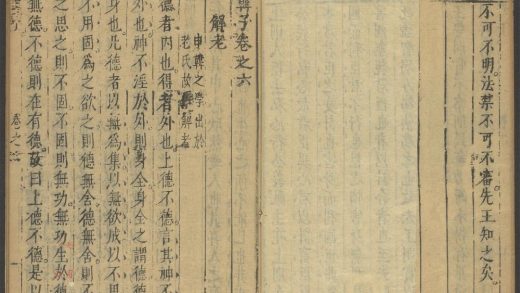 不可不明法禁不可不審先王知之矣
子卷之六
解老
申韓之學出於
老氏故解者
德者內也得者外也上德不德言其神不
外也神不淫於外則身全身全之謂德德
身也凡德者以無爲集以無欲成以不思
不用固爲之欲之則德無舍德無舍則不
之思之則不固不固則無功無功生於德
無德不德則在有德故曰上德不德是以
卷之六
一